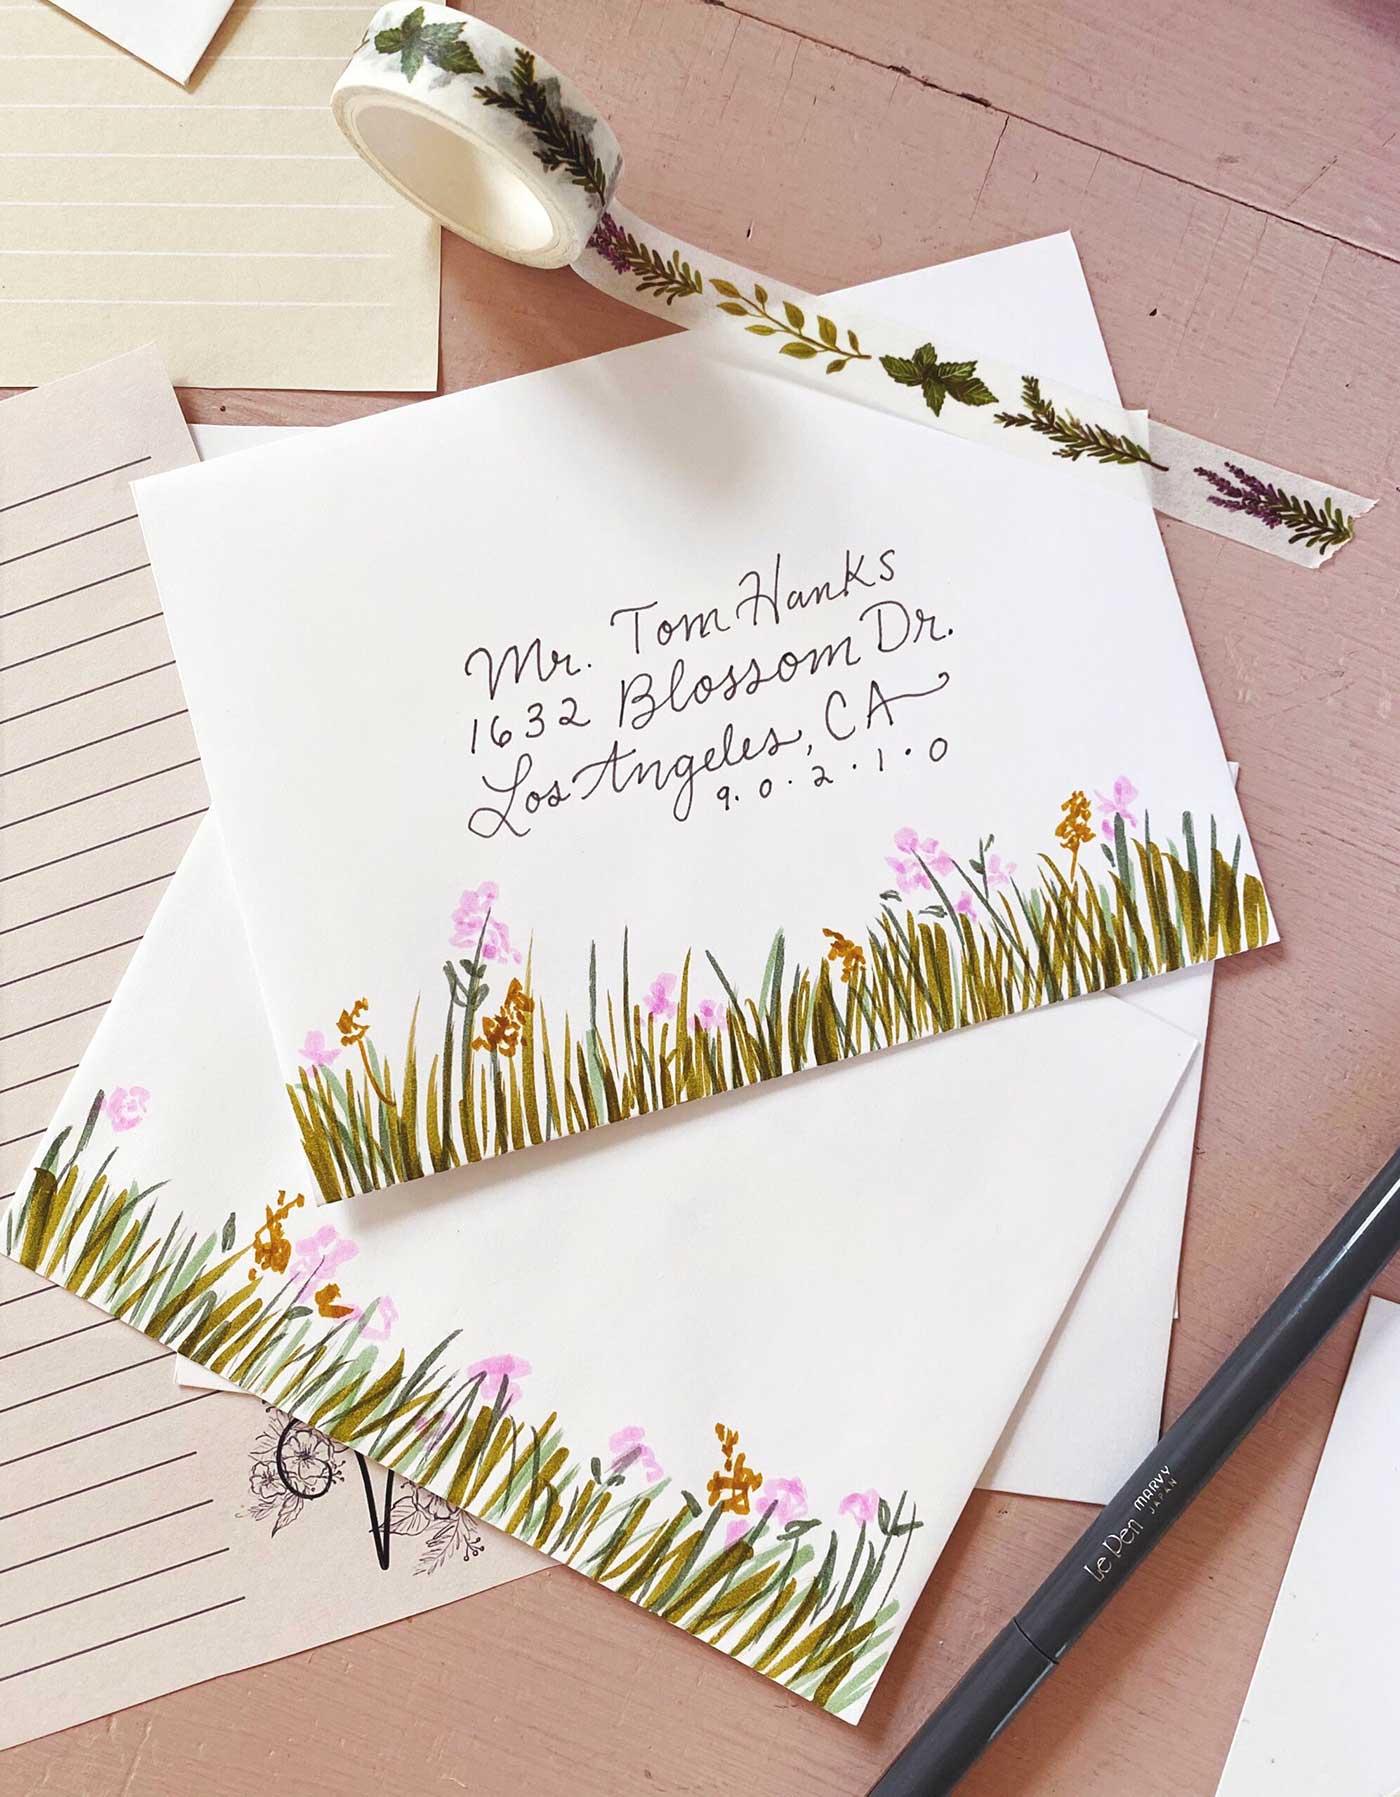 Mr. Tom Hanks
1632 Blossom Dr.
Los Angeles, CA
9.0.2.1.0
Le Pen MARVY
JAPAN